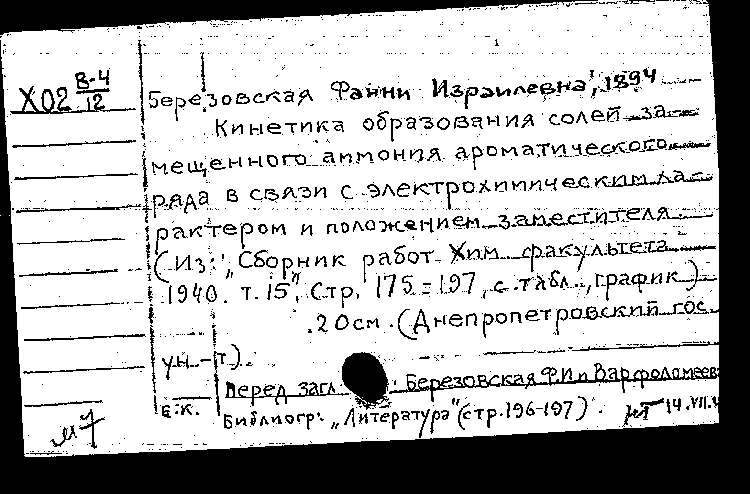 Х02 В-4/12
Березовская Фанни Израилевна, 1894
Кинетика образования солей за-
мещенного аммония ароматического
ряда в связи с электрохимическим ха-
рактером и положением заместителя.
(Из: "Сборник работ Хим. факультета
1940. т. 15", Стр. 175-197, с табл., график.)
20см. (Днепропетровский гос.
ун.-т).
Перед загл.: Березовская Ф.И и Варфоломеев
Б.К.
Библиогр: "Литература" (стр.196-197).
14.VII.4